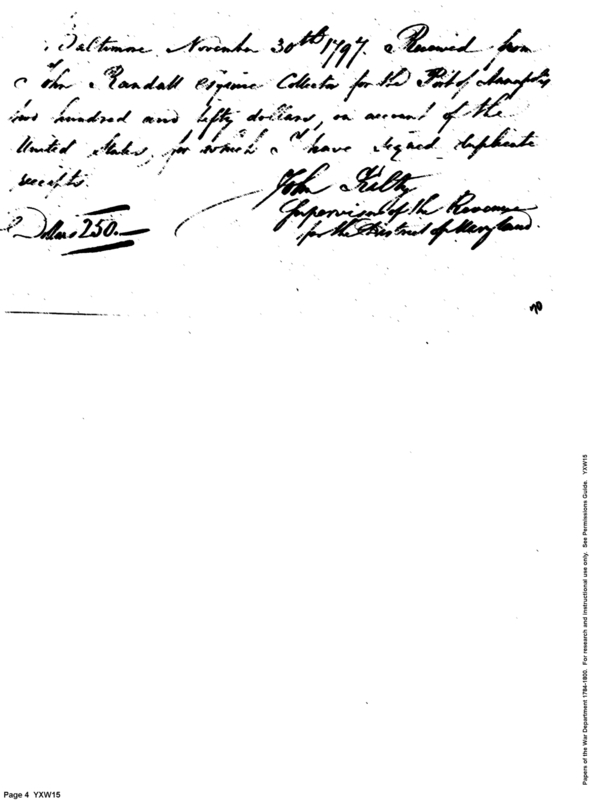 Baltimore November 30th 1797. Received from
John Randall esquire Collector for the Port of Annapolis
two hundred and fifty dollars, on account of the
United States, for which I have signed duplicate
receipts.
John Kilty
Supervisor of the Revenue
for the District of Maryland.
Dollars 250.—
Papers of the War Department 1784-1800. For research and instructional use only. See Permissions Guide. YXW15
Page 4 YXW15